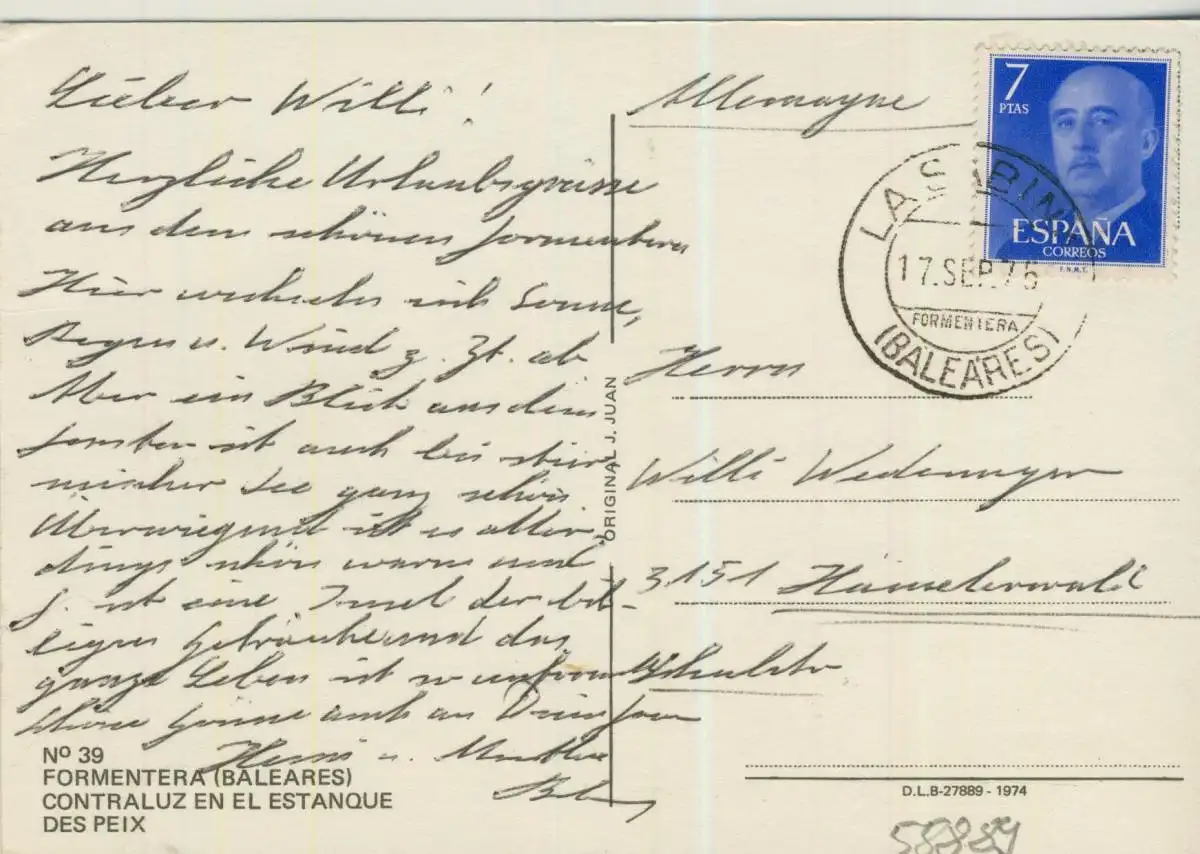 Lieber Willi!
Herzliche Urlaubsgrüsse
aus dem schönen Formentera
Hier wechseln sich Sonne,
Regen u. Wind z. Zt. ab
Aber ein Blick aus dem
Fenster ist auch bei stür
mischer See ganz schön.
Überwiegend ist es aller-
dings schön warm und
F. ist eine Insel der bil-
ligen Getränke und das
ganze Leben ist so
Grüsse auch an
u.
Allemagne
7
PTAS
ESPAÑA
CORREOS
F.N.M.T.
LA SABINA
17.SEP.75
FORMENTERA
(BALEARES)
Herrn
Willi Wedemeyer
3151 Hämelerwald
Schulstr
ORIGINAL J. JUAN
Nº 39
FORMENTERA (BALEARES)
CONTRALUZ EN EL ESTANQUE
DES PEIX
D.L.B-27889 - 1974